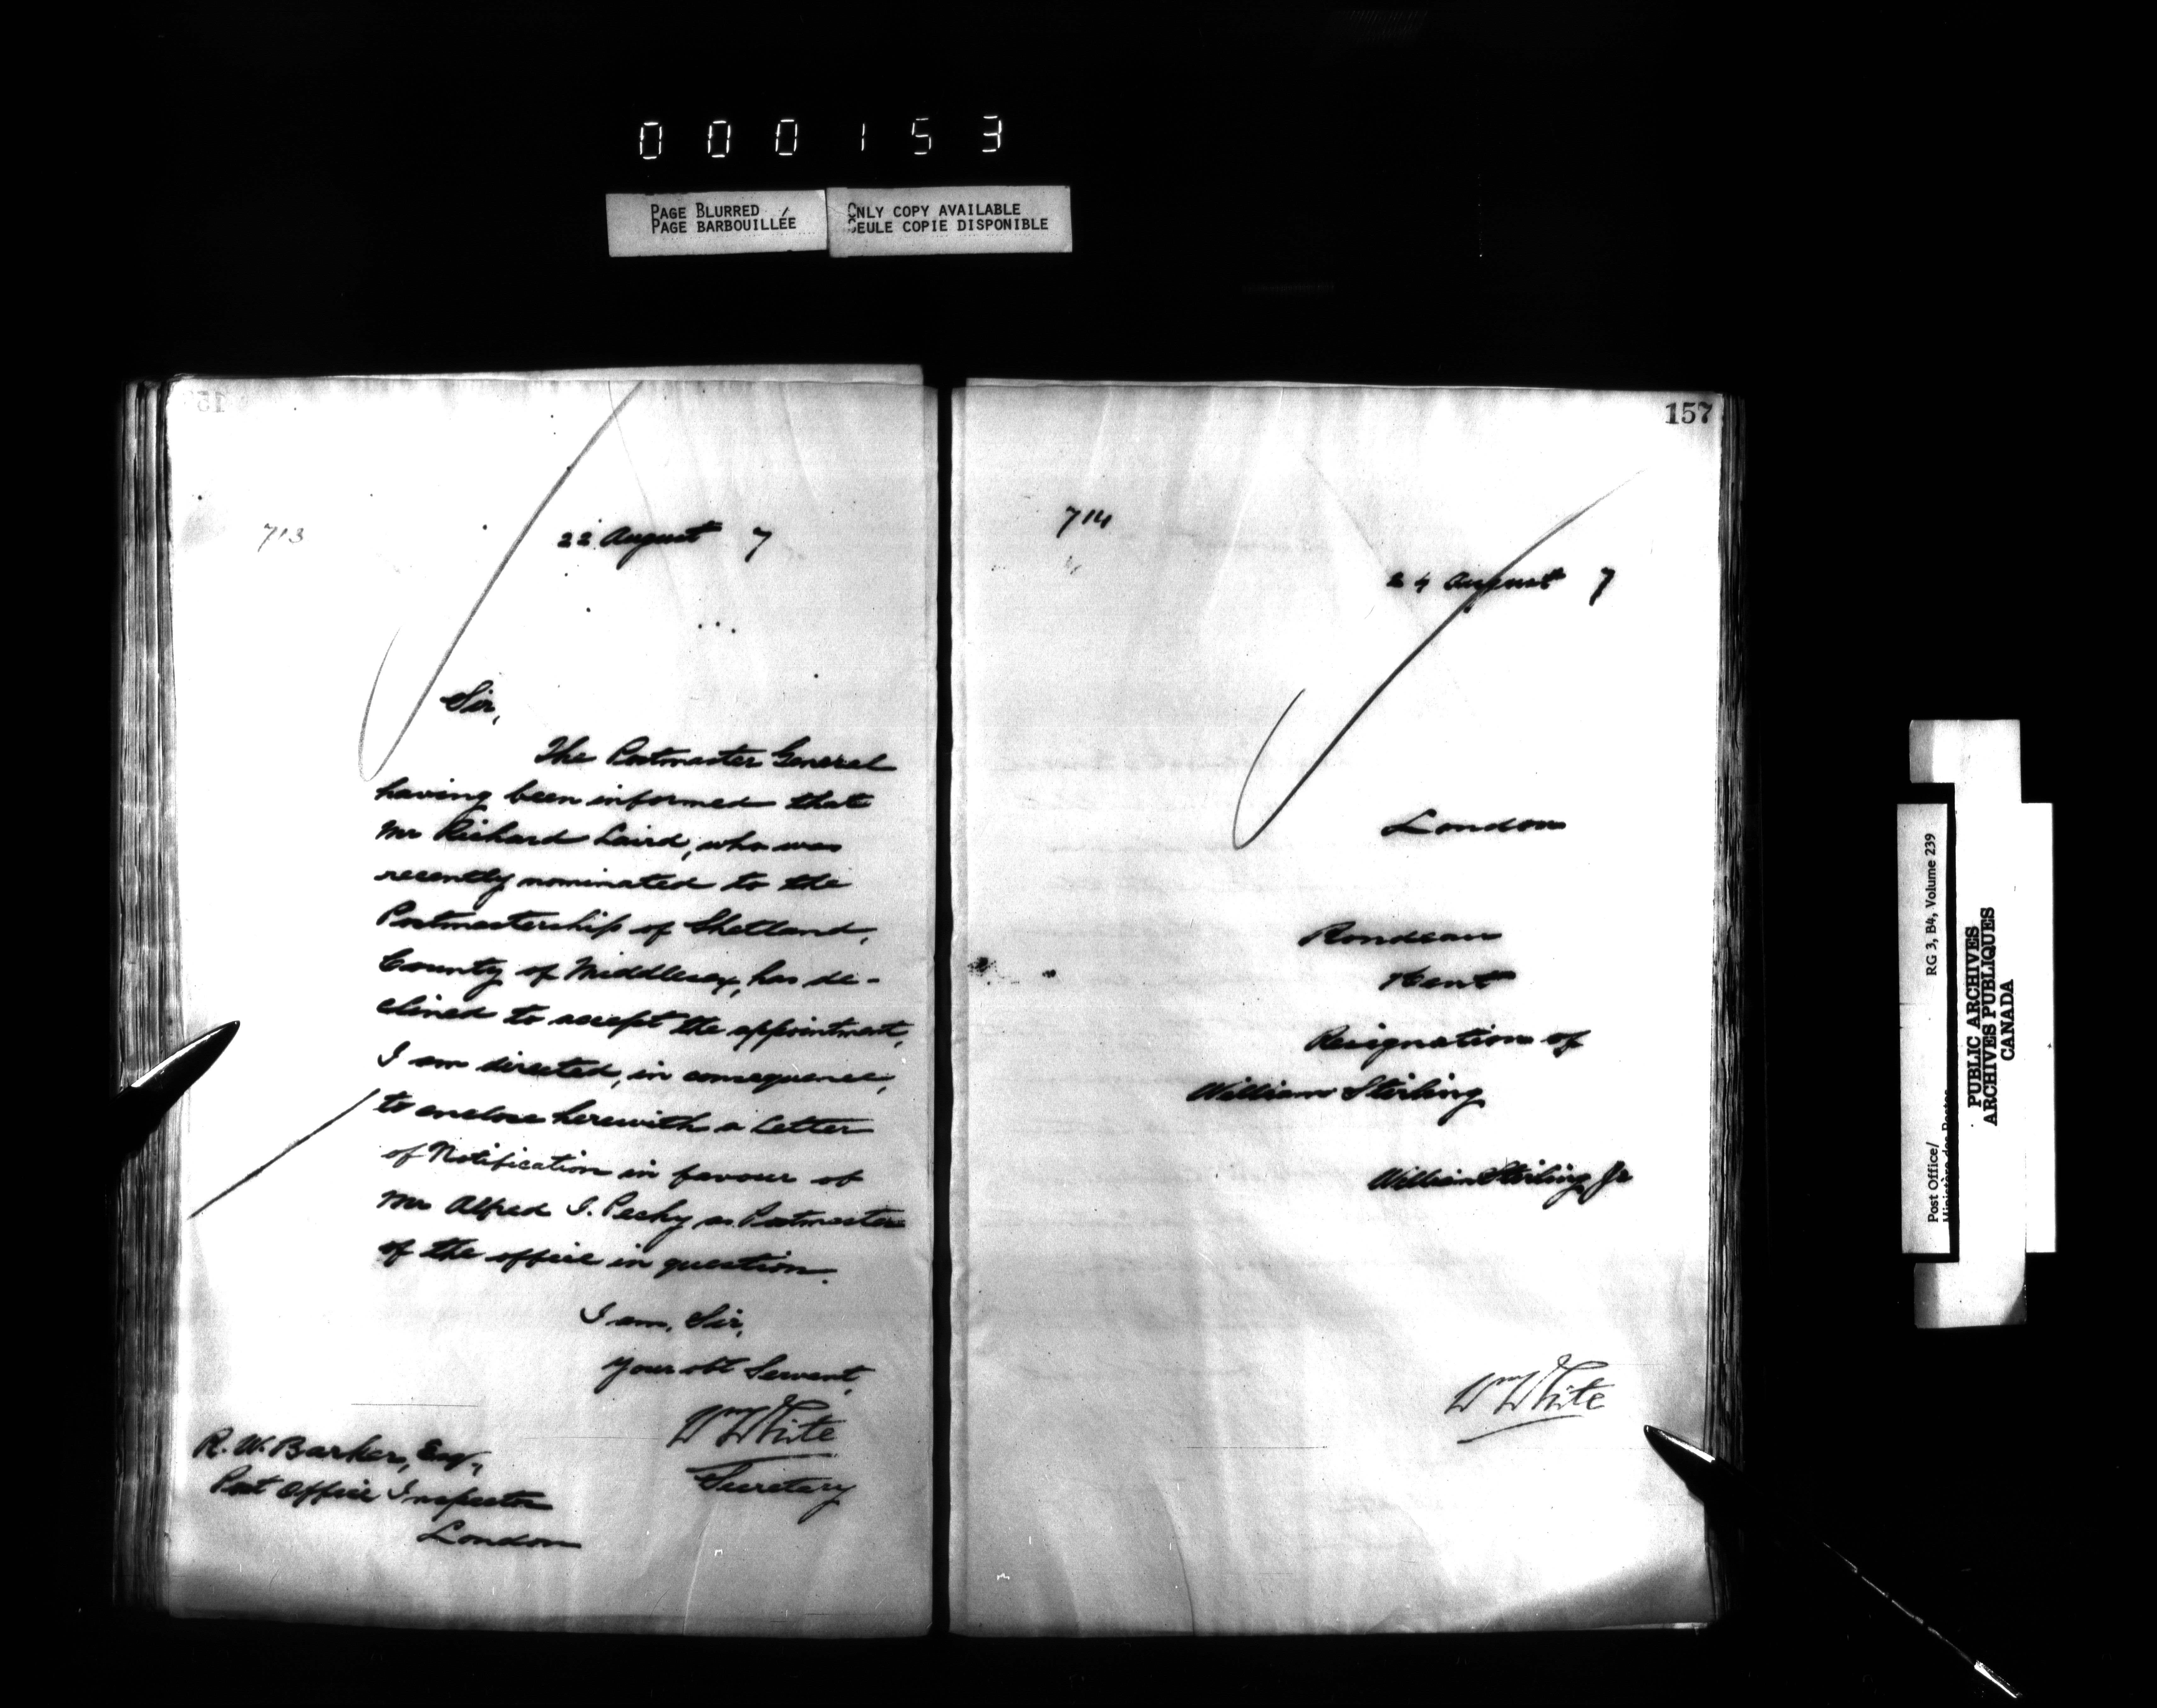 000153
PAGE BLURRED
PAGE BARBOUILLÉE
ONLY COPY AVAILABLE
SEULE COPIE DISPONIBLE
713
22 August 7
Sir,
The Postmaster General
having been informed that
Mr Richard Laird, who was
recently nominated to the
Postmastership of Shetland,
County of Middlesex, has de-
clined to accept the appointment,
I am directed, in consequence,
to enclose herewith a Letter
of Notification in favour of
Mr Alfred I. Pechy as Postmaster
of the office in question.
I am, Sir,
Your obt Servant,
Wm White
Secretary
R. W. Barker, Esq.,
Post Office Inspector
London
157
714
24 August 7
London
Rondeau
Kent
Resignation of
William Stirling
William Stirling Jr
Wm White
Post Office/
RG 3, B4, Volume 239
PUBLIC ARCHIVES
ARCHIVES PUBLIQUES
CANADA